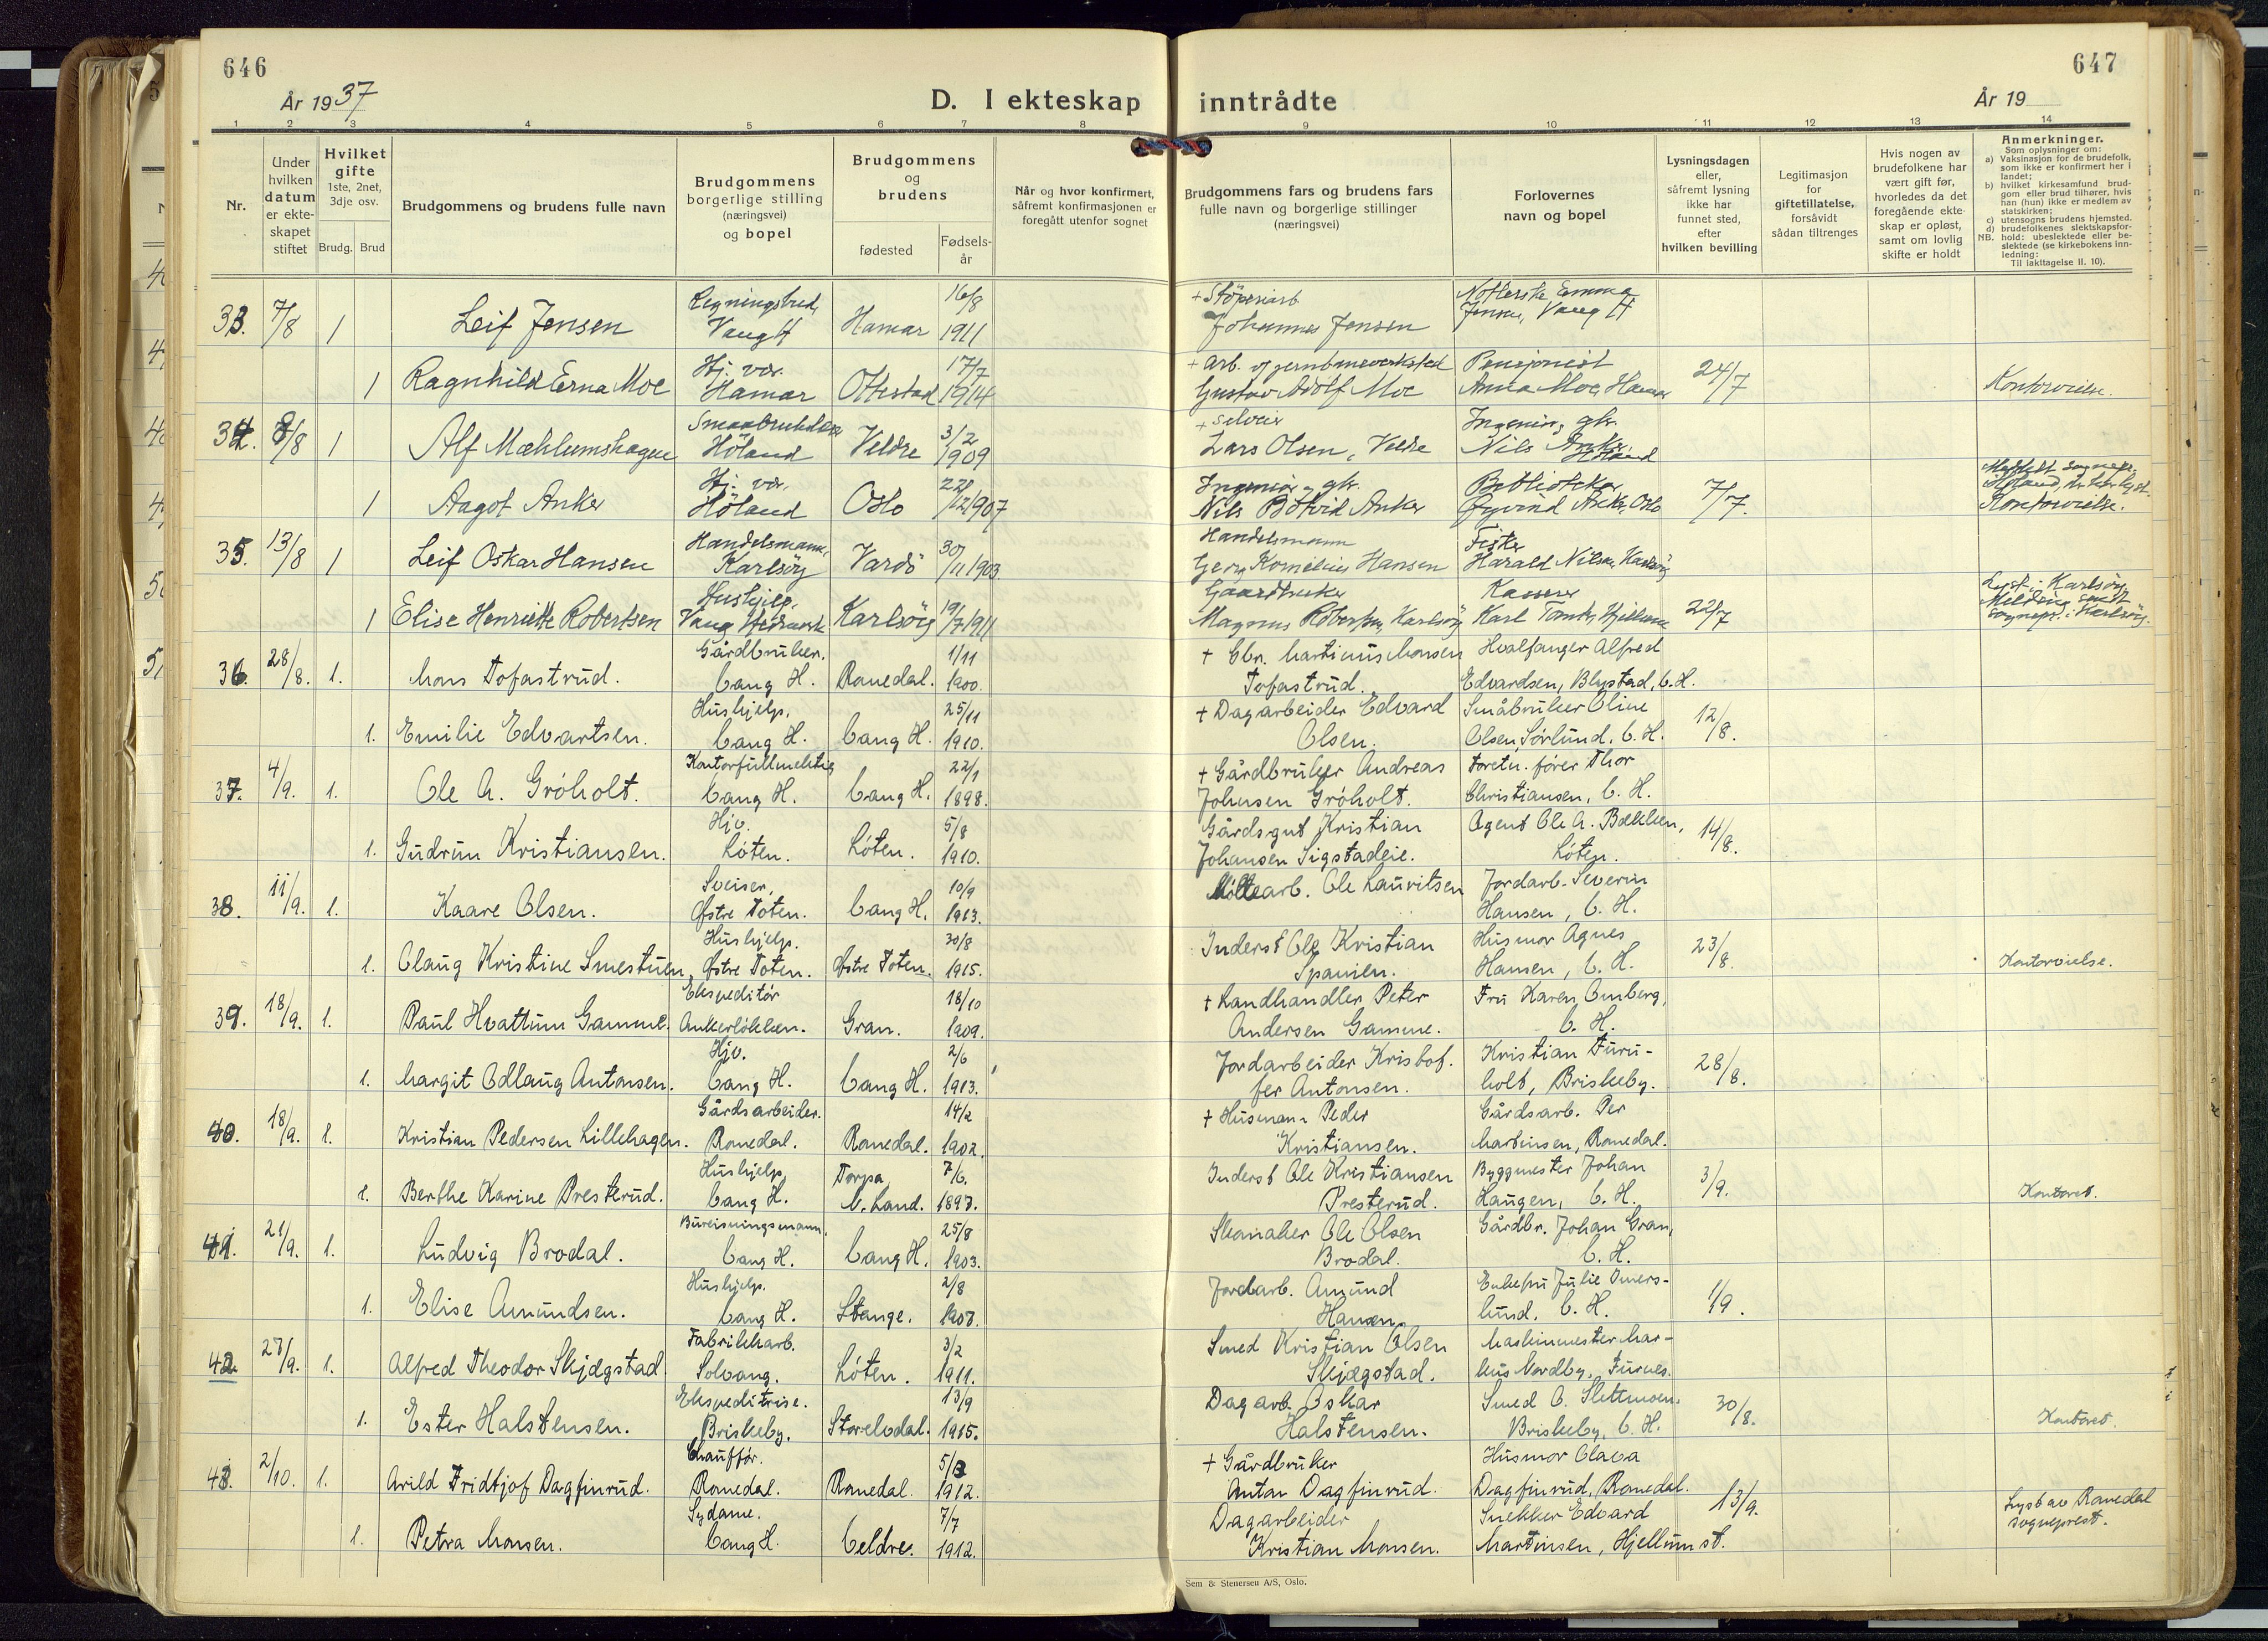 646
År 1937
D. I ekteskap inntrådte
647
År 19
1 2 3 4 5 6 7 8 9 10 11 12 13 14
Nr.
Under hvilken datum er ekteskapet stiftet
Hvilket gifte
1ste, 2net, 3dje osv.
Brudg. Brud
Brudgommens og brudens fulle navn
Brudgommens borgerlige stilling (næringsvei) og bopel
Brudgommens og brudens
fødested
Fødselsår
Når og hvor konfirmert, såfremt konfirmasjonen er foregått utenfor sognet
Brudgommens fars og brudens fars fulle navn og borgerlige stillinger (næringsvei)
Forlovernes navn og bopel
Lysningsdagen eller, såfremt lysning ikke har funnet sted, efter hvilken bevilling
Legitimasjon for giftetillatelse, forsåvidt sådan tiltrenges
Hvis nogen av brudefolkene har vært gift før, hvorledes da det foregående ekteskap er opløst, samt om lovlig skifte er holdt
Anmerkninger.
Som oplysninger om:
a) Vaksinasjon for de brudefolk, som ikke er konfirmert her i landet;
b) hvilket kirkesamfund brudgom eller brud tilhører, hvis han (hun) ikke er medlem av statskirken;
c) utensogns brudens hjemsted.
d) brudefolkenes slektskapsforhold: ubeslektede eller beslektede (se kirkebokens innledning:
NB.
Til iakttagelse II. 10).
33. 7/8 1 Leif Jensen Vang H Hamar 16/8 1911 + Støperiarb. Johannes Jensen Emma Jensen, Vang H
1 Ragnhild Erna Moe Hj. vær. Hamar Ottestad 17/7 1914 + Arb. Gustav Adolf Moe Pensjonist Anna Moe, Hamar 24/7 Kontorvielse.
34. 8/8 1 Alf Mæhlumshagen Smaabruker Høland Veldre 3/2 1909 + Selveier Lars Olsen, Veldre Ingeniør, gbr. Nils Anker Høland
1 Aagot Anker Hj. vær. Høland Oslo 22/12 1907 Ingeniør, gbr. Nils Botvid Anker Øyvind Anker, Oslo 7/7. Kontorvielse.
35. 13/8 1 Leif Oskar Hansen Handelsmann. Karlsøy Vardø 30/11 1903 Handelsmann Kornelius Hansen Fisker Harald Nilsen, Karlsøy
1 Elise Henriette Robertsen Hushjelp. Vang Hedmark Karlsøy 19/7 1911 Gaardbruker Magnus Robertsen, Karlsøy Kasserer Karl Hjellum 22/7 Lyst i Karlsøy sognepr. i Karlsøy.
36. 28/8. 1. Mons Tofastrud. Gårdbruker. Vang H. Romedal. 1/11 1900. + Gbr. Martinus Monsen Tofastrud. Hvalfanger Alfred Edvardsen, Blystad, V.H.
1. Emilie Edvartsen. Hushjelp. Vang H. Vang H. 25/11 1910. + Dagarbeider Edvard Olsen. Småbruker Oline Olsen, Sørlund, V.H. 12/8.
37. 4/9. 1. Ole A. Grøholt. Kontorfullmektig Vang H. Vang H. 22/1 1898. + Gårdbruker Andreas Johnsen Grøholt. Forretn. fører Thor Christiansen, V.H.
1. Gudrun Kristiansen. Hjv. Løten. Løten. 5/8 1910. Gårdsgut Kristian Johansen Sigstadeie. Agent Ole A. Bækken, Løten. 14/8.
38. 11/9. 1. Kaare Olsen. Sveiser. Østre Toten. Vang H. 10/9 1913. Ole Lauritsen Jordarb. Severin Hansen, V.H.
1. Olaug Kristine Smestuen. Hushjelp. Østre Toten. Østre Toten. 30/8 1915. Inderst Ole Kristian Spanien. Husmor Agnes Hansen, V.H. 23/8. Kontorvielse.
39. 18/9. 1. Paul Hvattum Gamme. Ekspeditør Ankerløkken. Gran. 18/10 1909. + Landhandler Peter Andersen Gamme. Fru Karen Omberg, V.H.
1. Margit Odlaug Antonsen. Hjv. Vang H. Vang H. 2/6 1913. Jordarbeider Kristoffer Antonsen. Kristian Furuholt, Briskeby. 28/8.
40. 18/9. 1. Kristian Pedersen Lillehagen. Gårdsarbeider. Romedal. Romedal. 14/2 1902. + Husmann Peder Kristiansen. Gårdsarb. Per Martinsen, Romedal.
1. Berthe Karine Presterud. Hushjelp Vang H. Torpa N. Land. 7/6. 1897. Inderst Ole Kristiansen Presterud. Byggmester Johan Haugen, V.H. 3/9. Kontoret.
41. 21/9. 1. Ludvig Brodal. Bureisningsmann. Vang H. Vang H. 25/8 1903. Skomaker Ole Olsen Brodal. Gårdbr. Johan Gran, V.H.
1. Elise Amundsen. Hushjelp. Vang H. Stange. 2/8 1907. Jordarb. Amund Hansen. Enkefru Julie Imerslund, V.H. 1/9.
42 27/9. 1. Alfred Theodor Skjægstad Fabrikkarb. Solvang. Løten. 3/2 1911. Smed Kristian Olsen Skjægstad. Maskinmester Markus Nordby, Furnes.
1. Ester Halstensen. Ekspeditrise. Briskeby. Storelvdal. 13/9 1915. Dagarb. Oskar Halstensen. Smed O. Slettmoen, Briskeby, V.H. 30/8. Kontoret.
43. 2/10. 1. Arild Fridtjof Dagfinrud. Chauffør. Romedal. Romedal. 5/3 1912. + Gårdbruker Anton Dagfinrud. Husmor Olava Dagfinrud, Romedal.
1. Petra Monsen. Sydame. Vang H. Veldre. 7/7 1912. Dagarbeider Kristian Monsen. Snekker Edvard Martinsen, Hjellum st. 13/9. Lyst av Romedal sogneprest.
Sem & Stenersen A/S, Oslo.